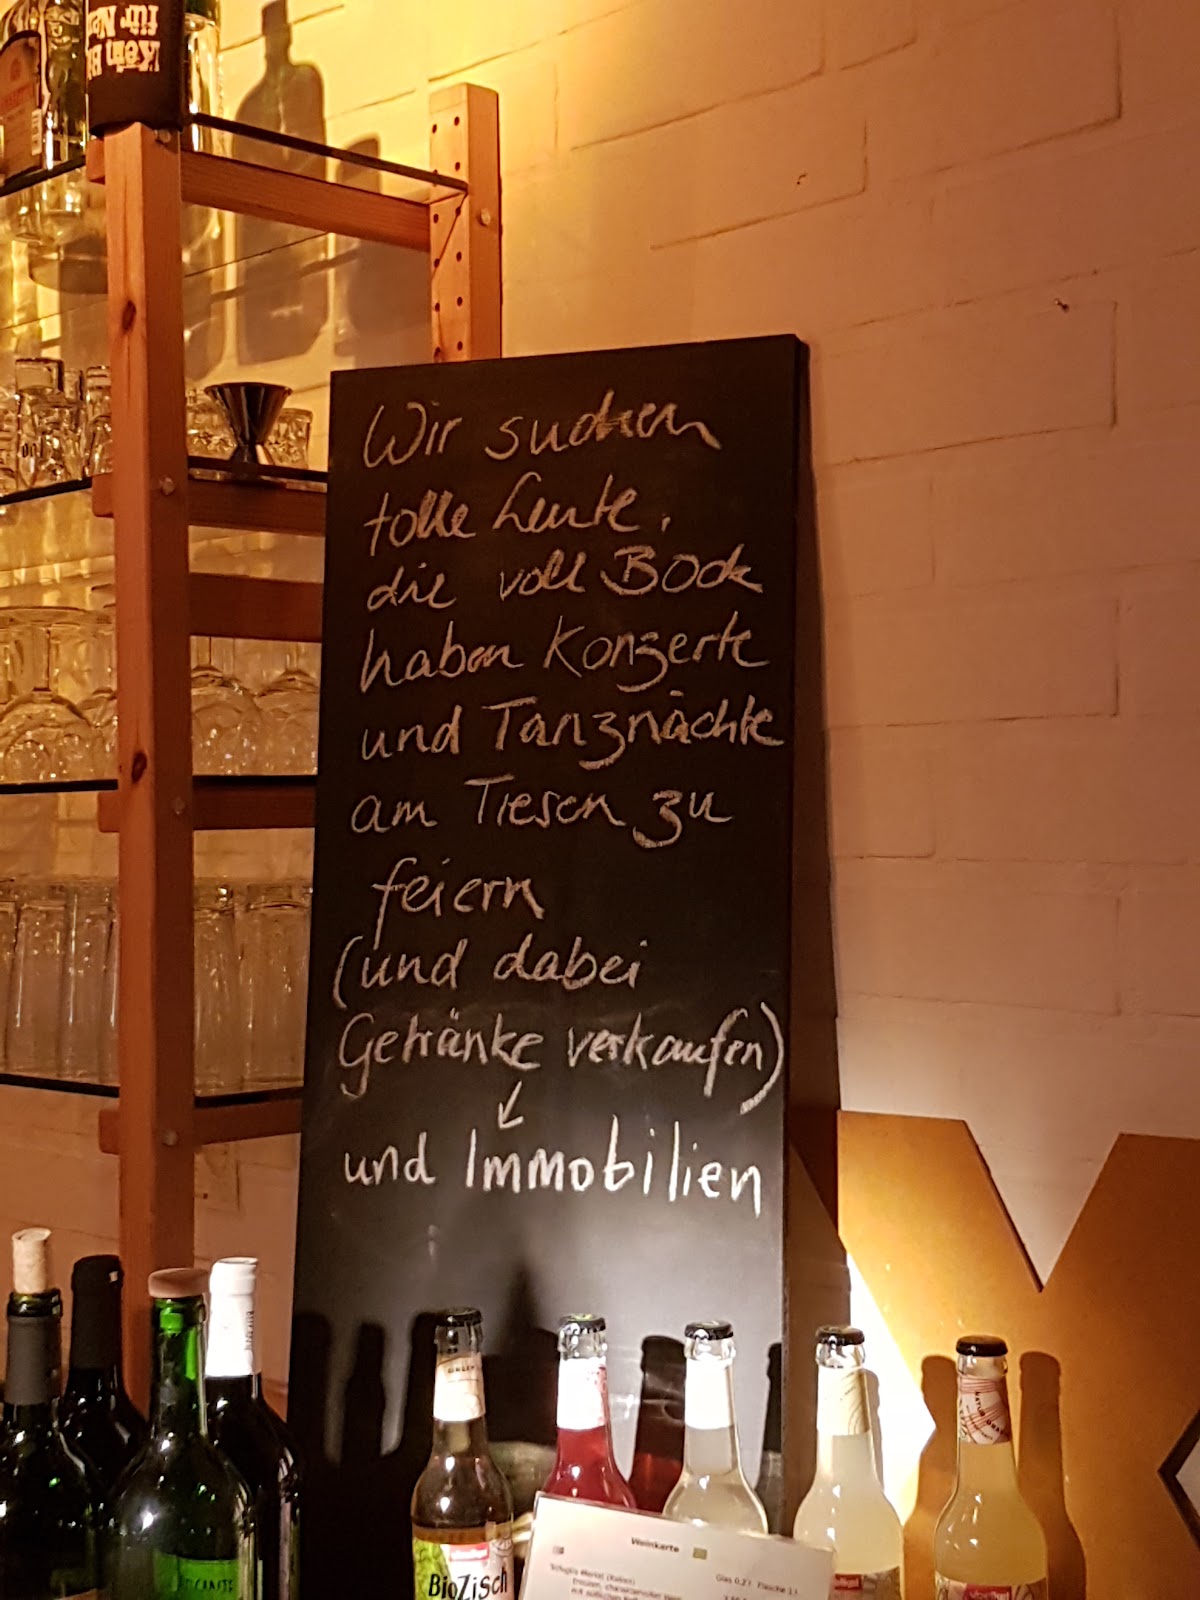 Kein
für
Wir suchen
tolle Leute,
die voll Bock
haben Konzerte
und Tanznächte
am Tresen zu
feiern
(und dabei
Getränke verkaufen)
und Immobilien
BioZisch
Weinkarte
Glas 0,2 l Flasche 1 l